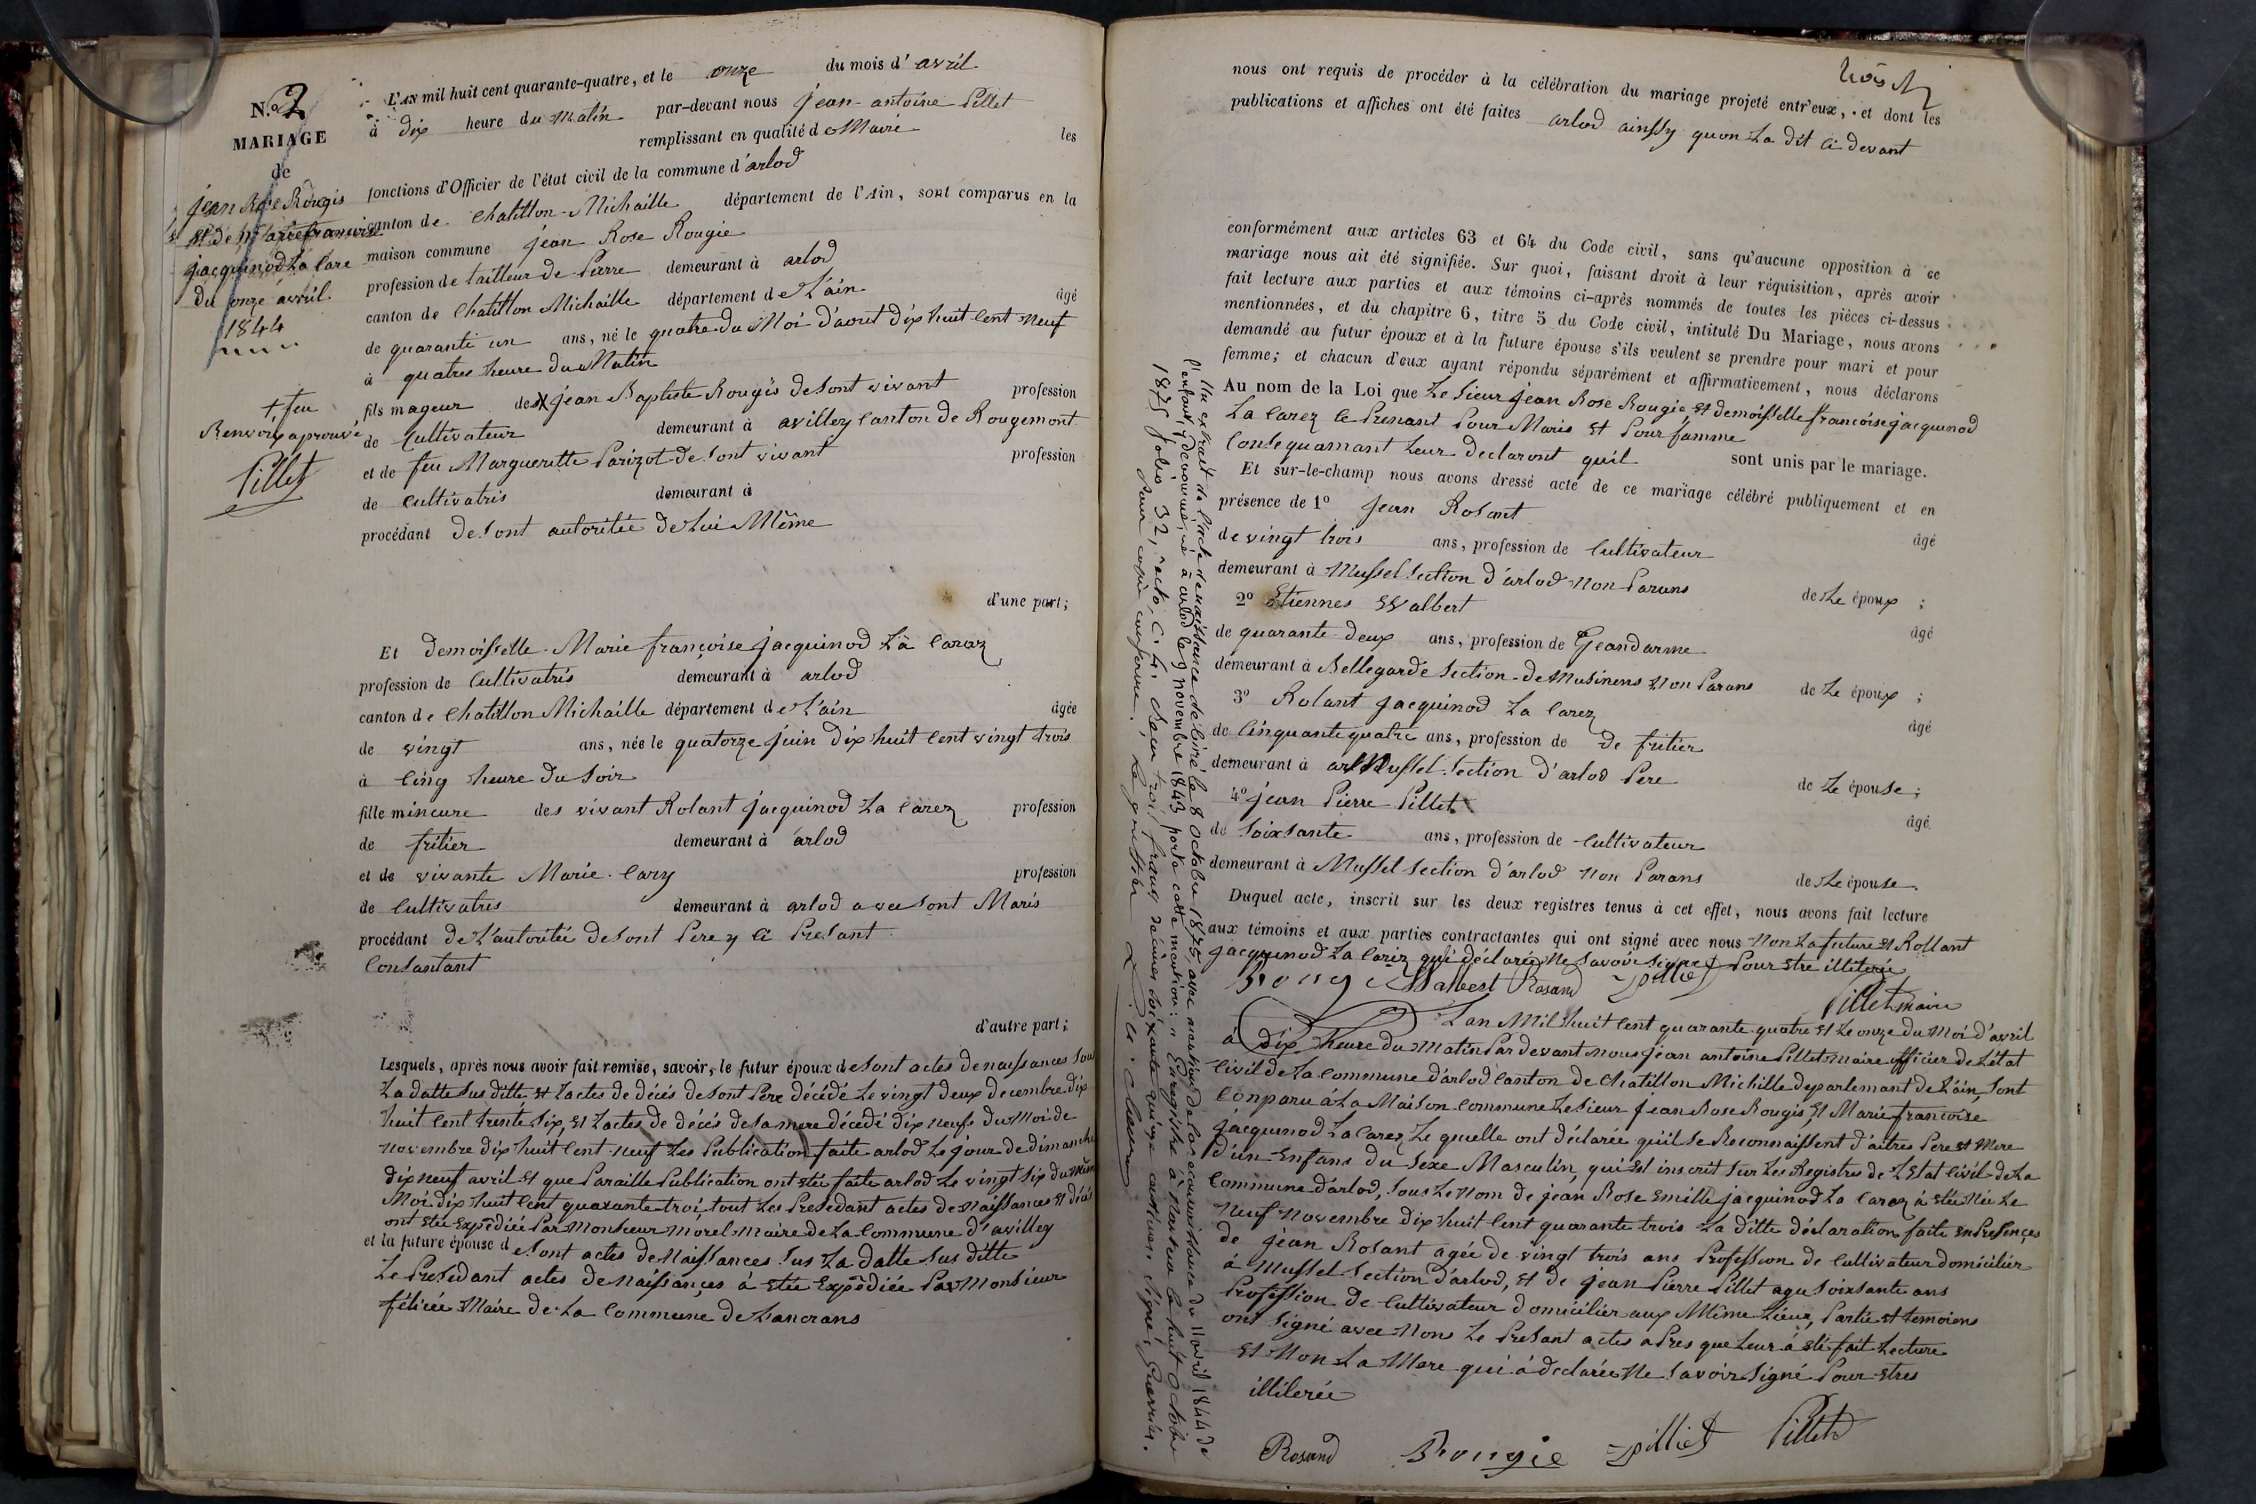 N.º 2
MARIAGE
de
jean Rose Rougis
et de Marie francoise
jacquinod La Care
du onze avril
1844
+ feu
Renvoix aprouvé
Pillet
L'AN mil huit cent quarante-quatre, et le onze du mois d'avril
à dix heure du matin par-devant nous jean-antoine Pillet
remplissant en qualité de Maire les
fonctions d'Officier de l'état civil de la commune d'arlod
canton de Chatillon-Michaille département de l'Ain, sont comparus en la
maison commune jean Rose Rougie
profession de tailleur de Pierre demeurant à arlod
canton de Chatillon Michaille département de L'ain âgé
de quarante un ans, né le quatre du Moi d'aout dix huit Cent Neuf
à quatres heure du Matin
fils mageur des jean Baptiste Rougis de Sont vivant profession
de Cultivateur demeurant à avilley Canton de Rougemont
et de feu Margueritte Parizot de Sont vivant profession
de Cultivatris demeurant à
procédant de Sont autoritée de Lui Même
d'une part;
Et demoisselle Marie françoise jacquinod La Caraz
profession de Cultivatris demeurant à arlod
canton de Chatillon Michaille département de L'ain âgée
de vingt ans, née le quatorze juin dix huit Cent vingt trois
à Cinq heure du Soir
fille mineure des vivant Rolant jacquinod La Carez profession
de fritier demeurant à arlod
et de vivante Marie Cary profession
de Cultivatris demeurant à arlod avec Sont Maris
procédant de L'autoritée de Sont Pere y Ci Presant
Consantant
d'autre part;
Lesquels, après nous avoir fait remise, savoir, le futur époux de Sont actes de naissances Sous
La datte Sus ditte, et Lactes de décés de Sont Pere décédé Le vingt deux decembre dix
huit Cent trente Six, et Lactes de décés de Sa mere décédé dix neufs du Moi de
novembre dix huit Cent neuf Les Publication faite arlod Le jour de dimanche
dix neuf avril et que Paraille Publication ont étée faite arlod Le vingt Six du même
Moi dix huit Cent quarante troi, tout Les Presedant actes de Naissances et décés
ont étée Expédiée Par Monsieur Morel Maire de La Commune d'avilley
et la future épouse de Sont actes de Naissances Sus La datte Sus ditte
Le Presedant actes de naissançes à étée Expédiée Par Monsieur
féliciée Maire de La Commune de Lancrans
trois
nous ont requis de procéder à la célébration du mariage projeté entr'eux, et dont les
publications et affiches ont été faites arlod ainssy quon La dit Ci devant
conformément aux articles 63 et 64 du Code civil, sans qu'aucune opposition à ce
mariage nous ait été signifiée. Sur quoi, faisant droit à leur réquisition, après avoir
fait lecture aux parties et aux témoins ci-après nommés de toutes les pièces ci-dessus
mentionnées, et du chapitre 6, titre 5 du Code civil, intitulé Du Mariage, nous avons
demandé au futur époux et à la future épouse s'ils veulent se prendre pour mari et pour
femme; et chacun d'eux ayant répondu séparément et affirmativement, nous déclarons
Au nom de la Loi que Le Sieur jean Rose Rougie et demoisselle francoise jacquinod
La Carez Ce Prenant Pour Maris et Pour famme
Consequamant Leur declaront quil sont unis par le mariage.
Et sur-le-champ nous avons dressé acte de ce mariage célébré publiquement et en
présence de 1º Jean Rosant âgé
de vingt trois ans, profession de Cultivateur
demeurant à Mussel Section d'arlod non Parans de Le époux ;
2º Etiennes Walbert âgé
de quarante deux ans, profession de Geandarme
demeurant à Bellegarde Section de Musinens Non Parans de Le époux ;
3º Rolant jacquinod La Carez âgé
de Cinquante quatre ans, profession de de fritier
demeurant à Mussel Section d'arlod Pere de Le épouse ;
4º jean Pierre Pillet âgé
de Soixsante ans, profession de Cultivateur
demeurant à Mussel Section d'arlod Non Parans de Le épouse.
Duquel acte, inscrit sur les deux registres tenus à cet effet, nous avons fait lecture
aux témoins et aux parties contractantes qui ont signé avec nous Non La future et Rollant
jacquinod La Carez qui déclarée Ne Savoir Signer Pour Etre illiterée
Walbert Rosand Pilliet
Pillet maire
Lan Mil huit Cent quarante quatre et Le onze du Moi d'avril
à dix heure du Matin Par devant nous jean antoine Pillet maire officier de L'état
Civil de La Commune d'arlod Canton de Chatillon Michille departemant de L'ain, Sont
Conparu à La Maison Commune Le Sieur jean Rose Rougis, et Marie francoise
jacquinod La Carez Le quelle ont déclarée quil Se Reconnaissent d'aitres Pere et Mere
d'un Enfans du Sexe Masculin, qui est inscrit Sur Les Registres de L'Etat Civil de La
Commune d'arlod, Sous Le Nom de jean Rose Emille jacquinod La Carez à étée Née Le
Neuf Novembre dix huit Cent quarante trois La ditte déclaration faite En Presençes
de jean Rosant agée de vingt trois ans Profession de Cultivateur domicilier
à Mussel Section d'arlod, et de jean Pierre Pillet agu Soixsante ans
Profession de Cultivateur domicilier aux Même Lieux, Partie et temoins
ont Signé avec Nous Le Presant actes aPres que Leur à été fait Lecture
et Non La Mere qui à declarée Ne Savoir Signé Pour Etres
illiterée
Rosand Rougie Pilliet Pillet
Un extrait de l'acte de naissance délivré le 8 Octobre 1875, avec mention de la reconnaissance du 11 avril 1844 de
l'enfant y dénommé, né à arlod le 9 novembre 1843 porte cette mention: « Enregistré à Nantua le huit Octobre
1875 folio 32, recto, C. 4. Reçu trois francs décimes soixante quinze centimes. Signé: Guerrier.
Pour copie conforme, Le greffier